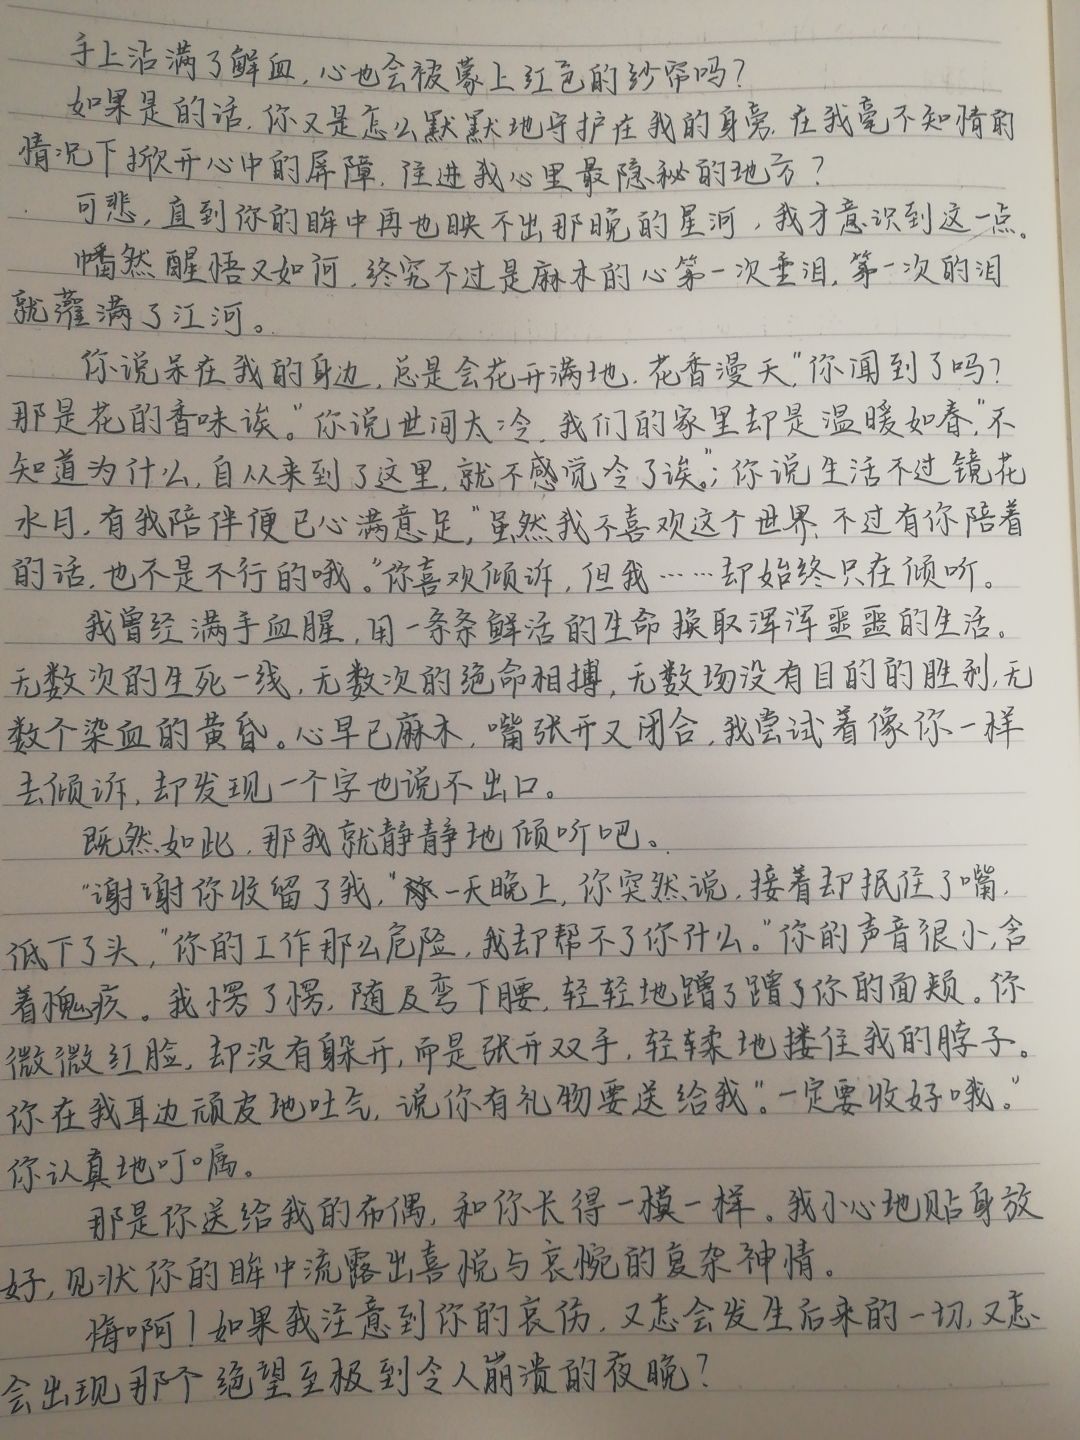 手上沾满了鲜血，心也会被蒙上红色的纱帘吗？
如果是的话，你又是怎么默默地守护在我的身旁，在我毫不知情的
情况下掀开心中的屏障，住进我心里最隐秘的地方？
可悲，直到你的眸中再也映不出那晚的星河，我才意识到这一点。
幡然醒悟又如何，终究不过是麻木的心第一次垂泪，第一次的泪
就灌满了江河。
你说呆在我的身边，总是会花开满地，花香漫天，“你闻到了吗？
那是花的香味诶。”你说世间太冷，我们的家里却是温暖如春，“不
知道为什么，自从来到了这里，就不感觉冷了诶。”；你说生活不过镜花
水月，有我陪伴便已心满意足，“虽然我不喜欢这个世界，不过有你陪着
的话，也不是不行的哦。”你喜欢倾诉，但我……却始终只在倾听。
我曾经满手血腥，用一条条鲜活的生命换取浑浑噩噩的生活。
无数次的生死一线，无数次的绝命相搏，无数场没有目的的胜利，无
数个染血的黄昏。心早已麻木，嘴张开又闭合，我尝试着像你一样
去倾诉，却发现一个字也说不出口。
既然如此，那我就静静地倾听吧。
“谢谢你收留了我，”一天晚上，你突然说，接着却抿住了嘴，
低下了头，“你的工作那么危险，我却帮不了你什么。”你的声音很小，含
着愧疚。我愣了愣，随及弯下腰，轻轻地蹭了蹭了你的面颊。你
微微红脸，却没有躲开，而是张开双手，轻轻地搂住我的脖子。
你在我耳边顽皮地吐气，说你有礼物要送给我。“一定要收好哦。”
你认真地叮嘱。
那是你送给我的布偶，和你长得一模一样。我小心地贴身放
好，见状你的眸中流露出喜悦与哀惋的复杂神情。
悔啊！如果我注意到你的哀伤，又怎会发生后来的一切，又怎
会出现那个绝望至极到令人崩溃的夜晚？